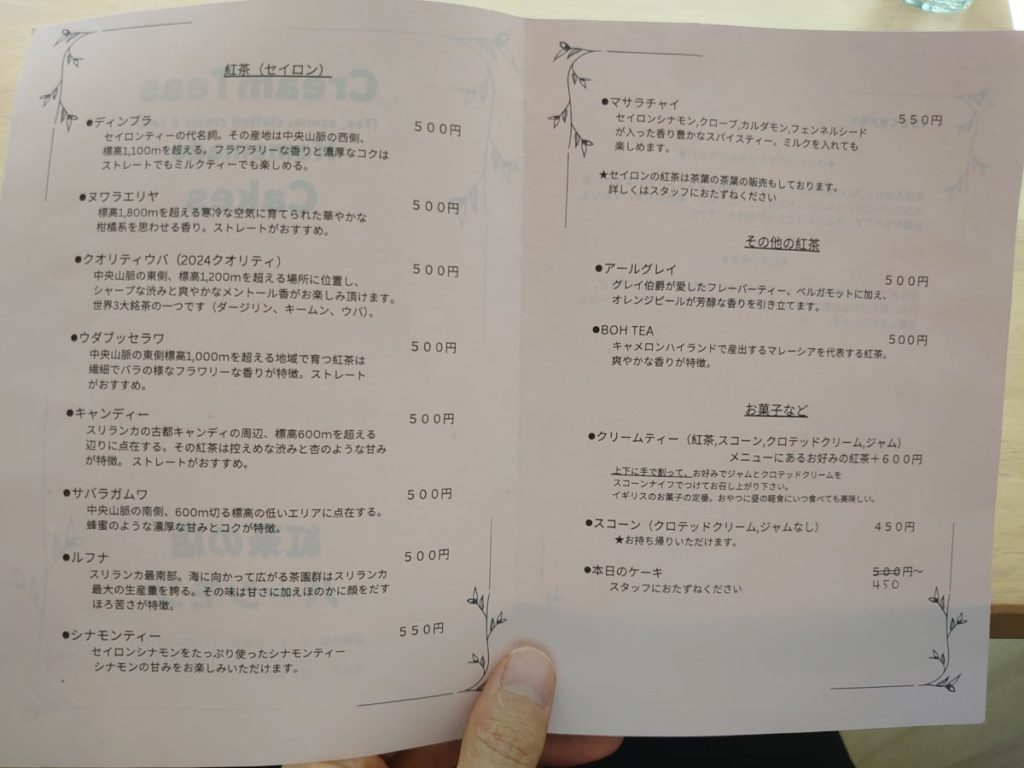 紅茶（セイロン）
●ディンブラ 500円
セイロンティーの代名詞。その産地は中央山脈の西側、
標高1,100mを超える。フラワラリーな香りと濃厚なコクは
ストレートでもミルクティーでも楽しめる。
●ヌワラエリヤ 500円
標高1,800mを超える寒冷な空気に育てられた華やかな
柑橘系を思わせる香り。ストレートがおすすめ。
●クオリティウバ（2024クオリティ） 500円
中央山脈の東側、標高1,200mを超える場所に位置し、
シャープな渋みと爽やかなメントール香がお楽しみ頂けます。
世界3大銘茶の一つです（ダージリン、キームン、ウバ）。
●ウダプッセラワ 500円
中央山脈の東側標高1,000mを超える地域で育つ紅茶は
繊細でバラの様なフラワリーな香りが特徴。ストレート
がおすすめ。
●キャンディー 500円
スリランカの古都キャンディの周辺、標高600mを超える
辺りに点在する。その紅茶は控えめな渋みと杏のような甘み
が特徴。 ストレートがおすすめ。
●サバラガムワ 500円
中央山脈の南側、600m切る標高の低いエリアに点在する。
蜂蜜のような濃厚な甘みとコクが特徴。
●ルフナ 500円
スリランカ最南部。海に向かって広がる茶園群はスリランカ
最大の生産量を誇る。その味は甘さに加えほのかに顔をだす
ほろ苦さが特徴。
●シナモンティー 550円
セイロンシナモンをたっぷり使ったシナモンティー
シナモンの甘みをお楽しみいただけます。
●マサラチャイ 550円
セイロンシナモン,クローブ,カルダモン,フェンネルシード
が入った香り豊かなスパイスティー。ミルクを入れても
楽しめます。
★セイロンの紅茶は茶葉の茶葉の販売もしております。
詳しくはスタッフにおたずねください
その他の紅茶
●アールグレイ 500円
グレイ伯爵が愛したフレーバーティー、ベルガモットに加え、
オレンジピールが芳醇な香りを引き立てます。
●BOH TEA 500円
キャメロンハイランドで産出するマレーシアを代表する紅茶。
爽やかな香りが特徴。
お菓子など
●クリームティー（紅茶,スコーン,クロテッドクリーム,ジャム）
メニューにあるお好みの紅茶＋600円
上下に手で割って、お好みでジャムとクロテッドクリームを
スコーンナイフでつけてお召し上がり下さい。
イギリスのお菓子の定番。おやつに昼の軽食にいつ食べても美味しい。
●スコーン（クロテッドクリーム,ジャムなし） 450円
★お持ち帰りいただけます。
●本日のケーキ 500円～
スタッフにおたずねください 450